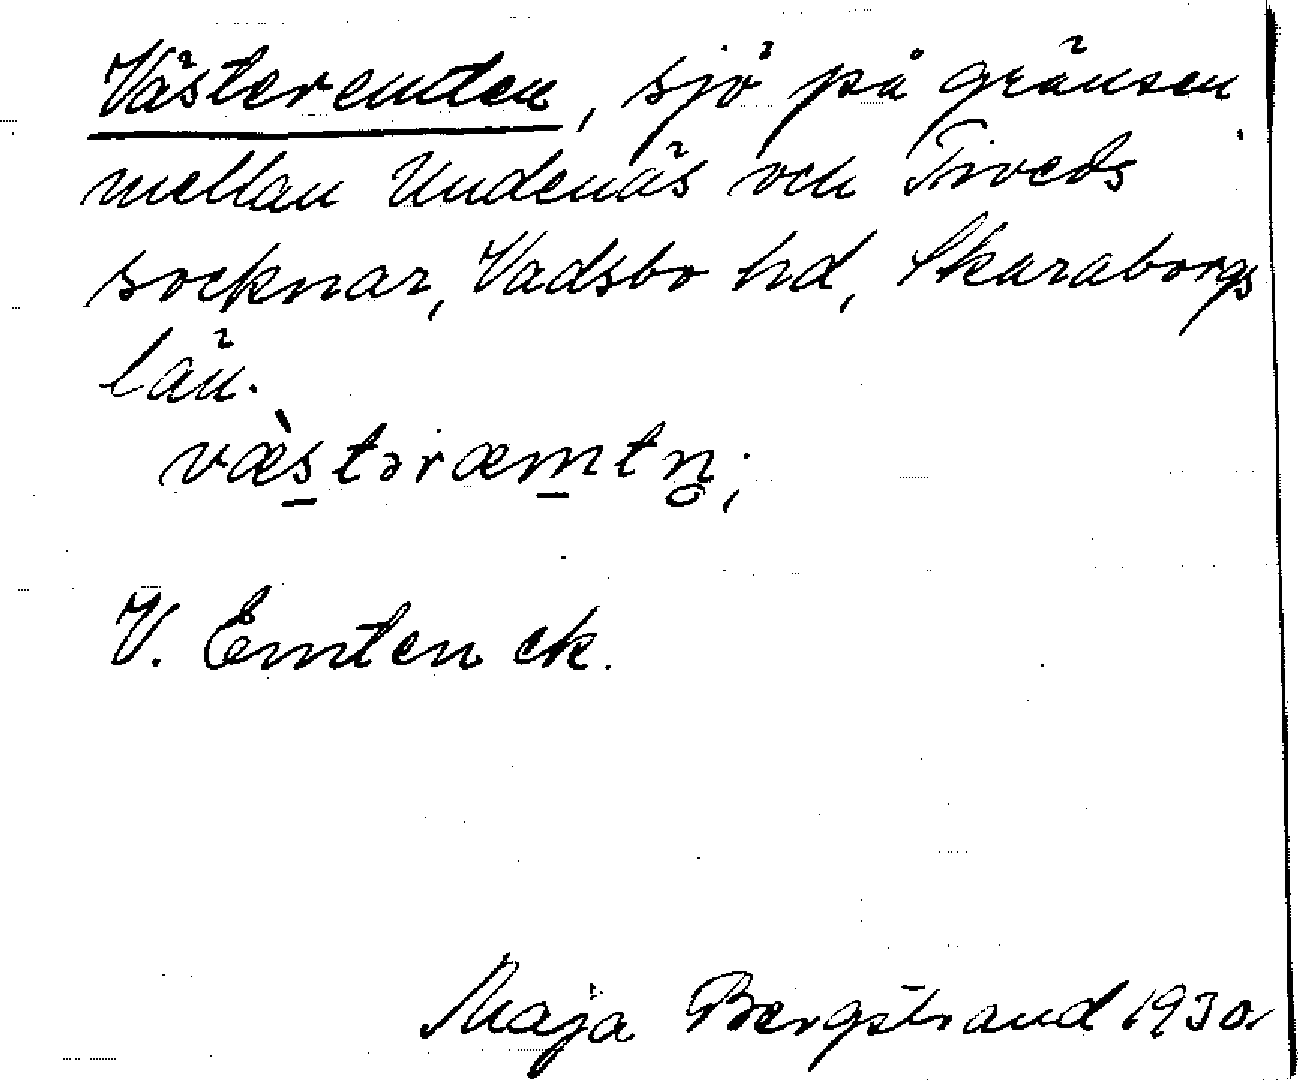 Västeremten, sjö på gränsen
mellan Undenäs och Tiveds
socknar, Vadsbo hd, Skaraborgs
län.
væ̀s̲təræm̲tn̥;
V. Emten ek.
Maja Bergstrand 1930